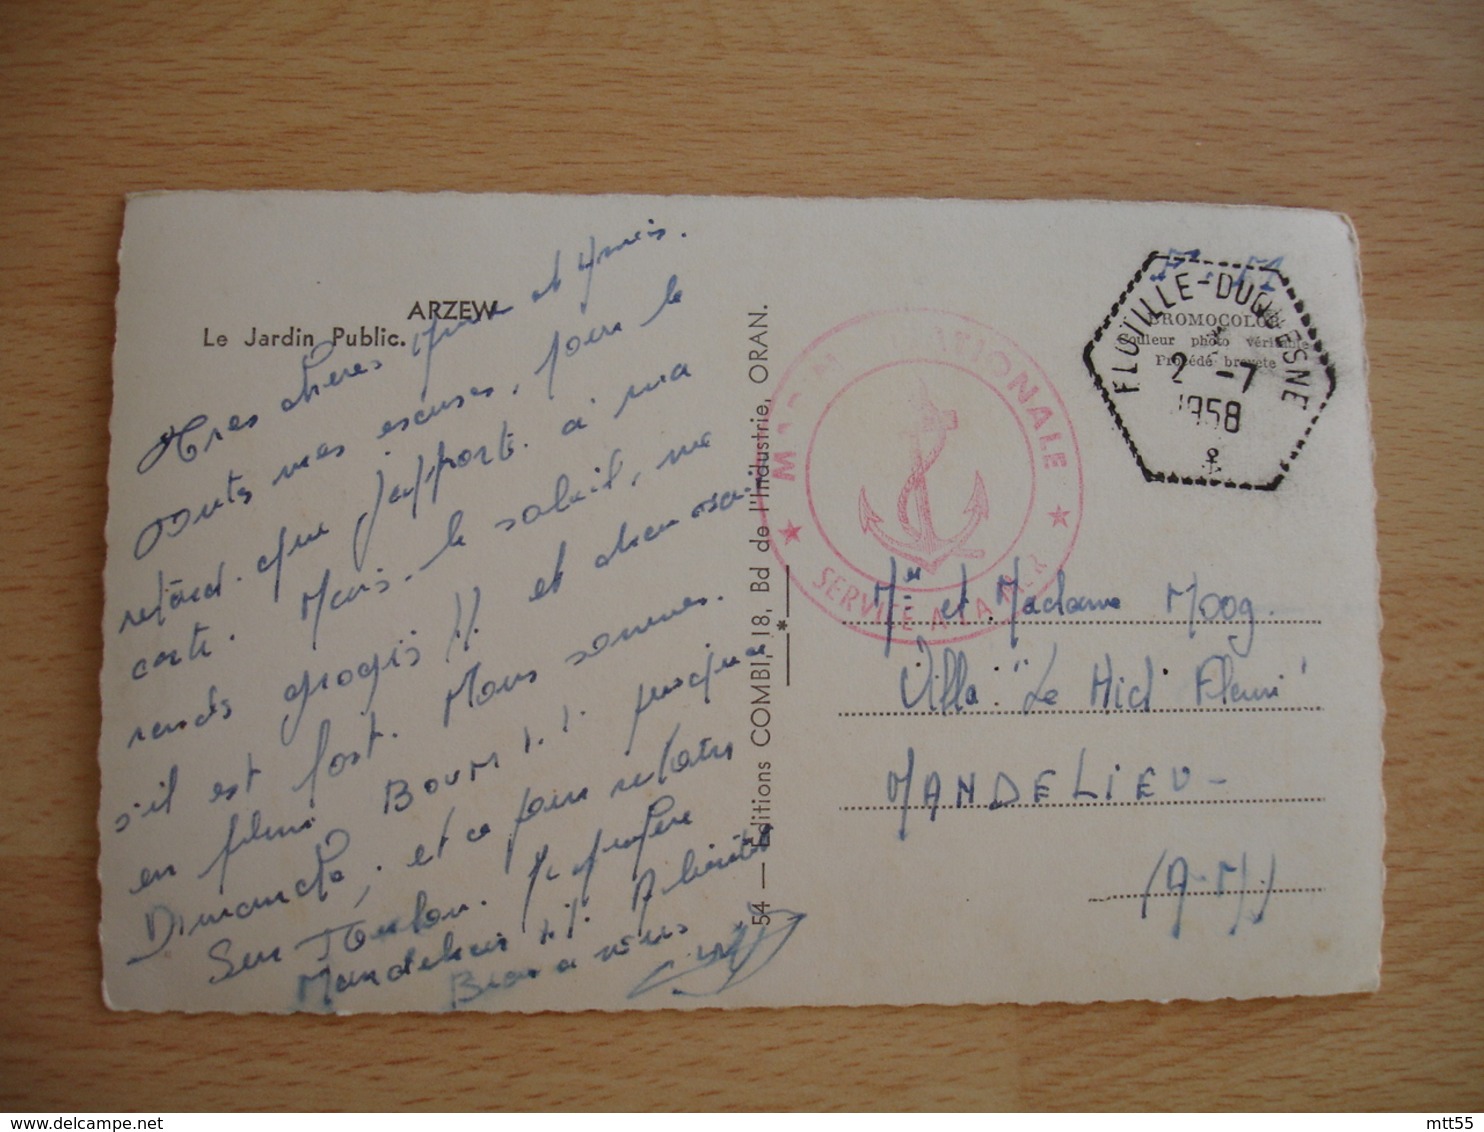 ARZEW
Le Jardin Public.
et amis.
toutes mes excuses, pour le
retard que j'apporte à ma
carte. Mais le soleil, me
rends grogis !! et dieu sai
s'il est fort. Nous sommes
en plein BOUM !! jusqu'au
Dimanche, et ce pour
Sur Toulon. Je préfère
Mandelieu !! A bientôt
Bien à vous
54 — Editions COMBI, 18, Bd de l'Industrie, ORAN.
MARINE NATIONALE
SERVICE A LA MER
F.M.
FLOTILLE-DUQUESNE
2 -7
1958
BROMOCOLOR
Couleur photo véritable
Procédé breveté
Mr et Madame Moog.
Villa: "Le Midi Fleuri"
MANDELIEU -
(A-M)
mtt55